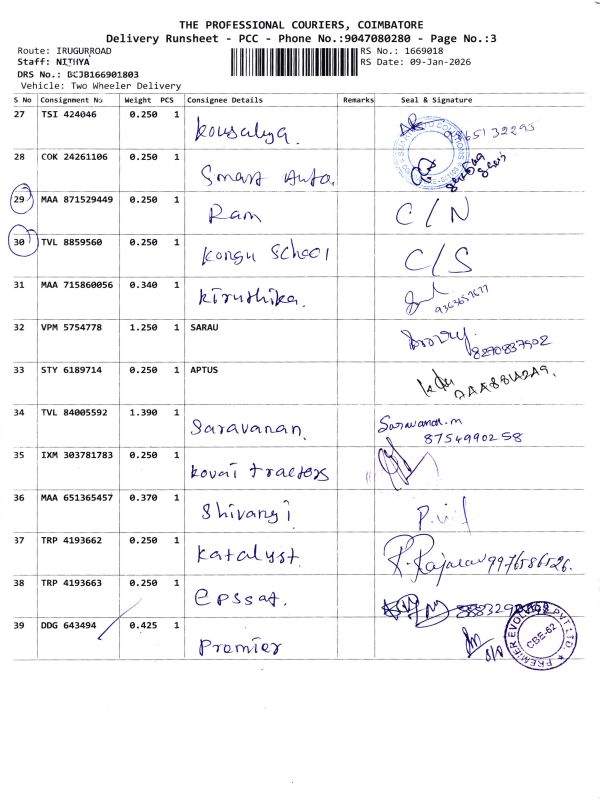 THE PROFESSIONAL COURIERS, COIMBATORE
Delivery Runsheet - PCC - Phone No.:9047080280 - Page No.:3
Route: IRUGURROAD RS No.: 1669018
Staff: NITHYA RS Date: 09-Jan-2026
DRS No.: BCJB166901803
Vehicle: Two Wheeler Delivery
S No Consignment No Weight PCS Consignee Details Remarks Seal & Signature
27 TSI 424046 0.250 1 Kousalya.
28 COK 24261106 0.250 1 Smart Auto.
29 MAA 871529449 0.250 1 Ram C/N
30 TVL 8859560 0.250 1 Kongu School C/S
31 MAA 715860056 0.340 1 Kiruthika. 9363657677
32 VPM 5754778 1.250 1 SARAU 8270837502
33 STY 6189714 0.250 1 APTUS
34 TVL 84005592 1.390 1 Saravanan. Saravanan.m
8754990258
35 IXM 303781783 0.250 1 Kovai tractors
36 MAA 651365457 0.370 1 Shivangi
37 TRP 4193662 0.250 1 Katalyst. 9976586526.
38 TRP 4193663 0.250 1 epssat.
39 DDG 643494 0.425 1 Premier CBE-62